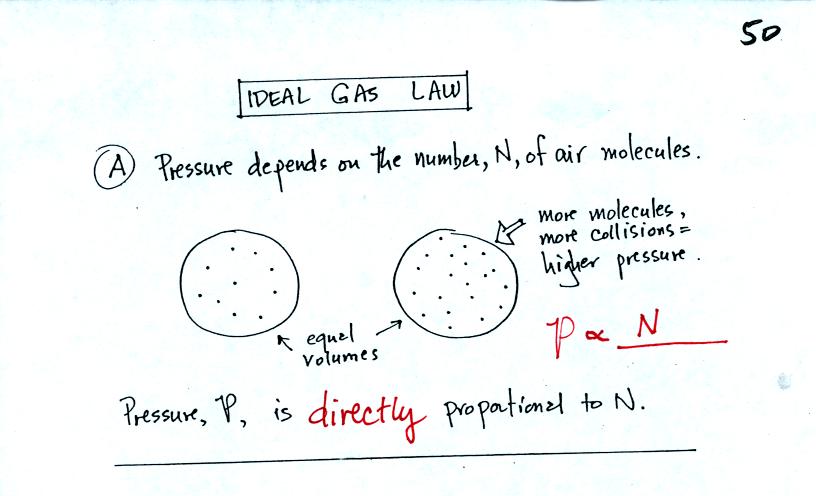 50
IDEAL GAS LAW
A Pressure depends on the number, N, of air molecules.
more molecules,
more collisions =
higher pressure.
equal
volumes
P ∝ N
Pressure, P, is directly proportional to N.